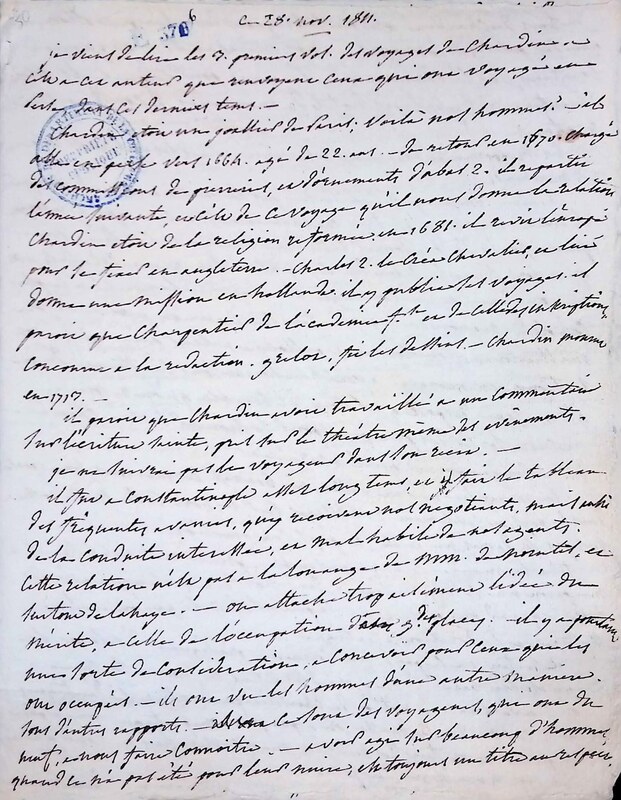 376
6
ce 28. nov. 1811.
je viens de lire les 3. premiers vol. des voyages de Chardin.
cet auteur que renvoyent ceux qui ont voyagé en
Perse dans ces derniers tems. —
Chardin etoit un joaillier de Paris; voilà nos hommes! il
alla en perse vers 1664. agé de 22. ans. — de retour en 1670. chargé
des commissions de pierreries, et d'ornements d'abas 2. il repartit
l'année suivante, et c'est de ce voyage qu'il nous donne la relation
Chardin etoit de la religion reformée. en 1681. il revit l'europe
pour se fixer en angleterre. — Charles 2. le créa Chevalier, et lui
donna une mission en hollande. il y publia ses voyages. il
paroit que Charpentier de l'académie f.se et de celle des inscriptions,
concourut a la redaction. grelot, fit les dessins. — Chardin mourut
en 1713. —
il paroit que Chardin avoit travaillé a un Commentaire
sur l'ecriture sainte, pris sur le théatre même des evènements.
je ne suivrai pas le voyageur dans son recit. —
il fut a Constantinople assez long tems, et il fait le tableau
des fréquentes avanies, qu'y reçoivent nos negotiants, mais aussi
de la conduite interessée, et mal habile de nos agents.
Cette relation n'est pas a la louange de MM. de nointel, et
surtout de la haye. — on attache trop aisément l'idée du
mérite, a celle de l'occupation des gdes places. — il y a pourtant
une sorte de considération, a concevoir pour ceux qui les
ont occupées. — ils ont vu les hommes d'une autre maniere.
sous d'autres rapports. — ce sont des voyageurs, qui ont du
neuf, a nous faire connoitre. — avoir agi sur beaucoup d'hommes,
quand ce n'a pas été pour leur nuire, est toujours un titre au respect